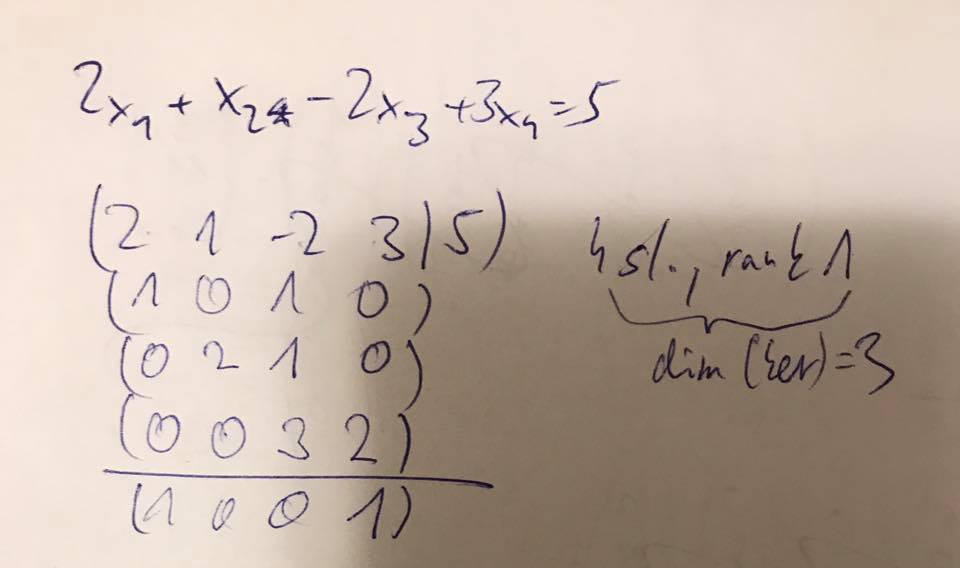 2x₁ + x₂ - 2x₃ + 3x₄ = 5
(2 1 -2 3 | 5)
(1 0 1 0)
(0 2 1 0)
(0 0 3 2)
(1 0 0 1)
4 sl., rank 1
dim (ker) = 3